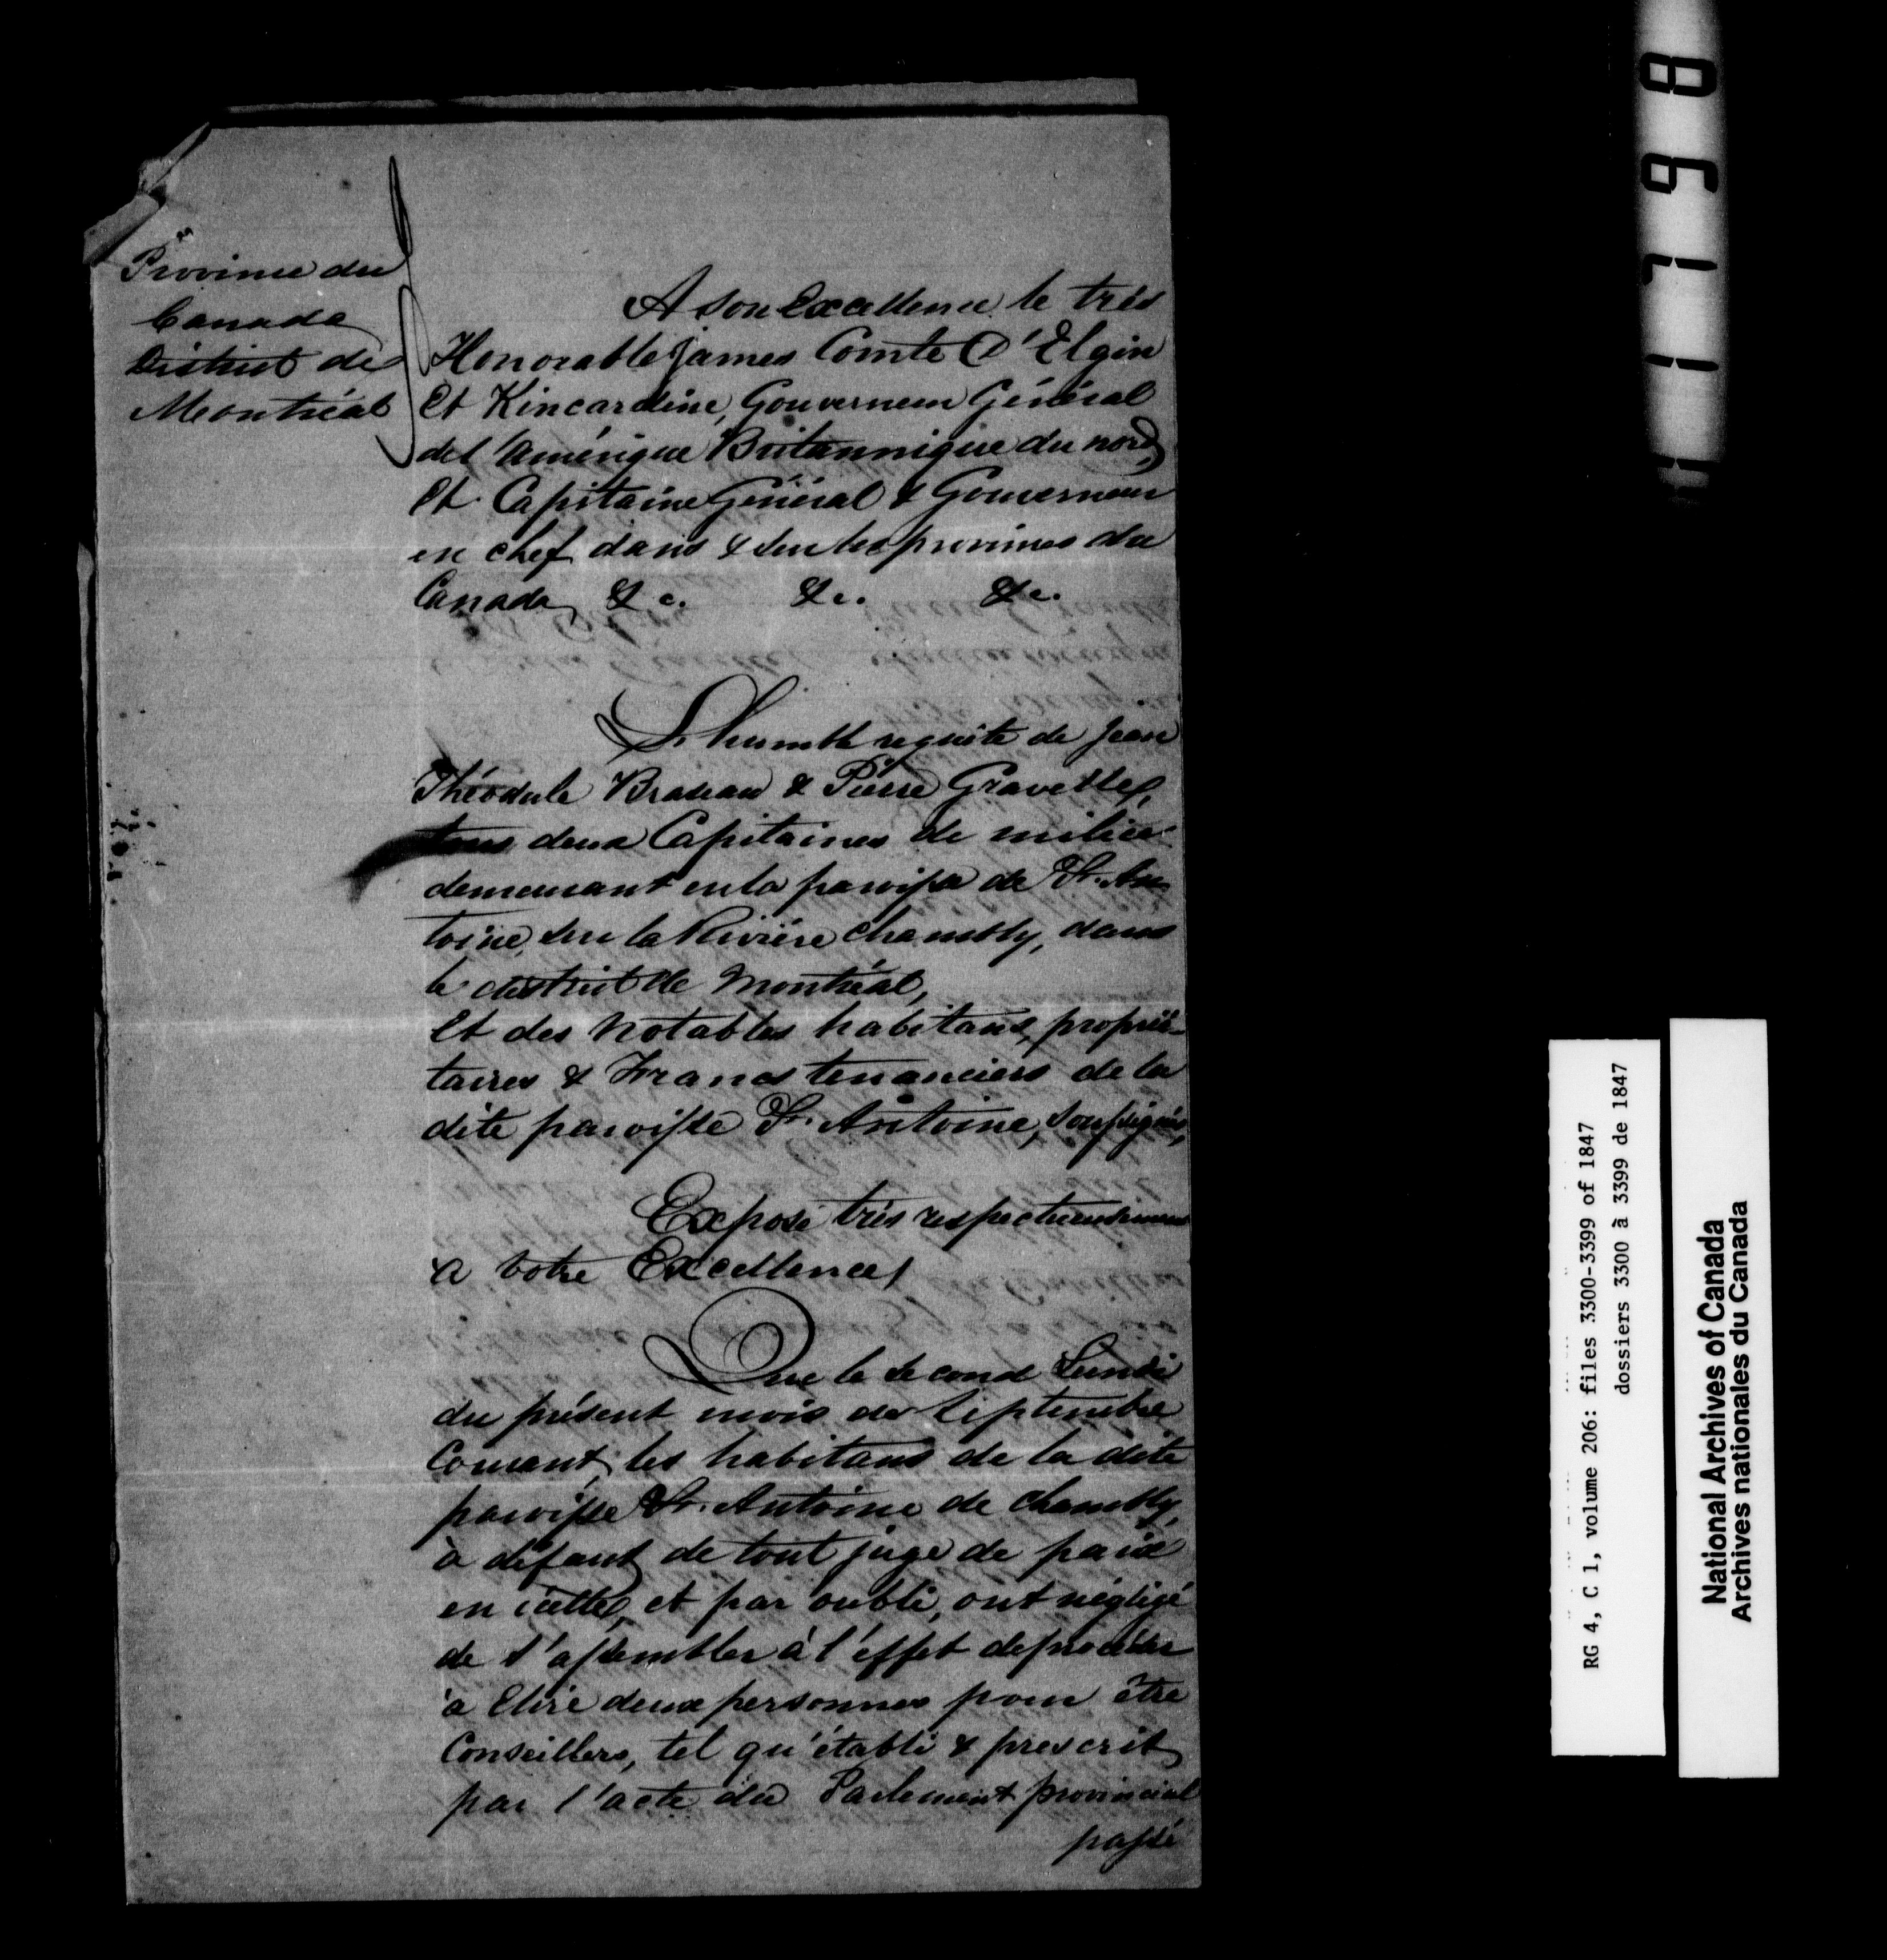 Province du
Canada
District de
Montréal
A Son Excellence le très
Honorable James Comte D'Elgin
Et Kincardine, Gouverneur Général
del'Amérique Britannique du nord,
Et Capitaine Général & Gouverneur
en chef dans & sur les provinces du
Canada &c. &c. &c.
L'humble requête de Jean
Théodule Braseau & Pierre Gravelle,
tous deux Capitaines de milice
demeurant en la paroisse de St. An-
toine, sur la Rivière Chambly, dans
le district de Montréal,
Et des Notables habitans, proprié-
taires & Francs tenanciers de la
dite paroisse St. Antoine, soussignés,
Expose très respectueusement
a votre Excellence,
Que le second Lundi
du présent mois de Septembre
Courant, les habitans de la dite
paroisse St. Antoine de Chambly,
à défaut de tout juge de paix
en icelle, et par oubli, ont négligé
de s'assembler à l'effet de procéder
à Elire deux personnes pour être
Conseillers, tel qu'établi & prescrit
par l'acte du Parlement provincial
passé
11798
RG 4, C 1, volume 206: files 3300-3399 of 1847
dossiers 3300 à 3399 de 1847
National Archives of Canada
Archives nationales du Canada